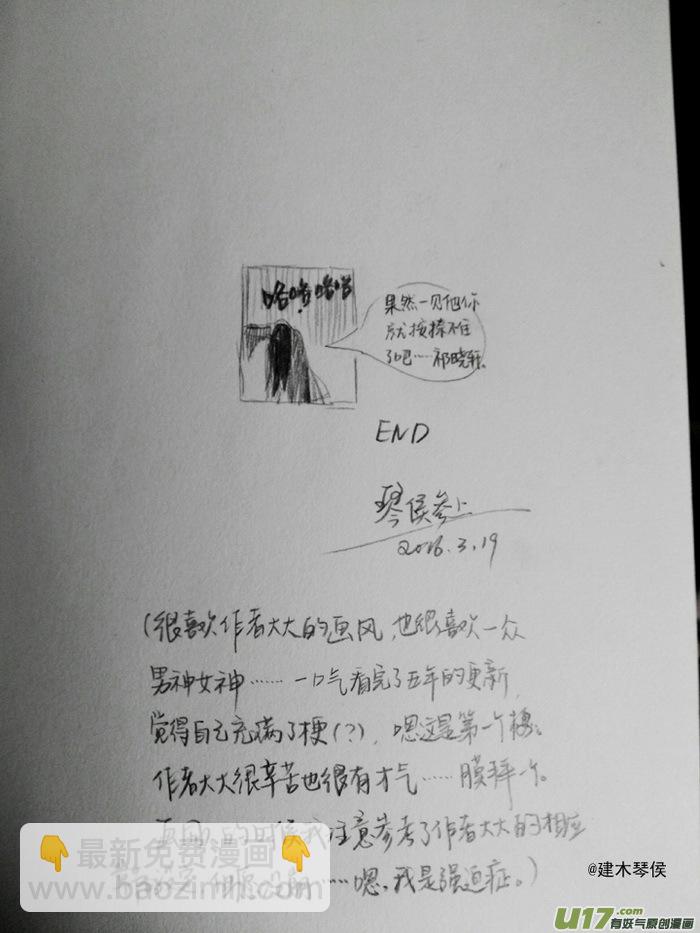 哈哈哈哈
果然一见他你
就按捺不住
了吧……祁晓轩。
END
琴侯参上
2016.3.19
(很喜欢作者大大的画风,也很喜欢一众
男神女神……一口气看完了五年的更新,
觉得自己充满了梗(?),嗯这是第一个梗。
作者大大很辛苦也很有才气……膜拜一个。
注意参考了作者大大的相应
……嗯,我是强迫症。)
最新免费漫画
www.baozimh.com
@建木琴侯
U17.com
有妖气原创漫画